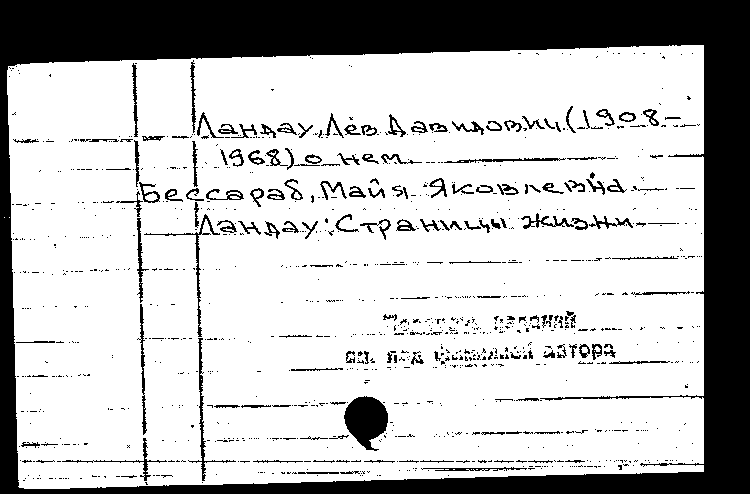 Ландау, Лев Давидович (1908-
1968) о нем.
Бессараб, Майя Яковлевна.
Ландау: Страницы жизни.
изданий
см. под фамилией автора